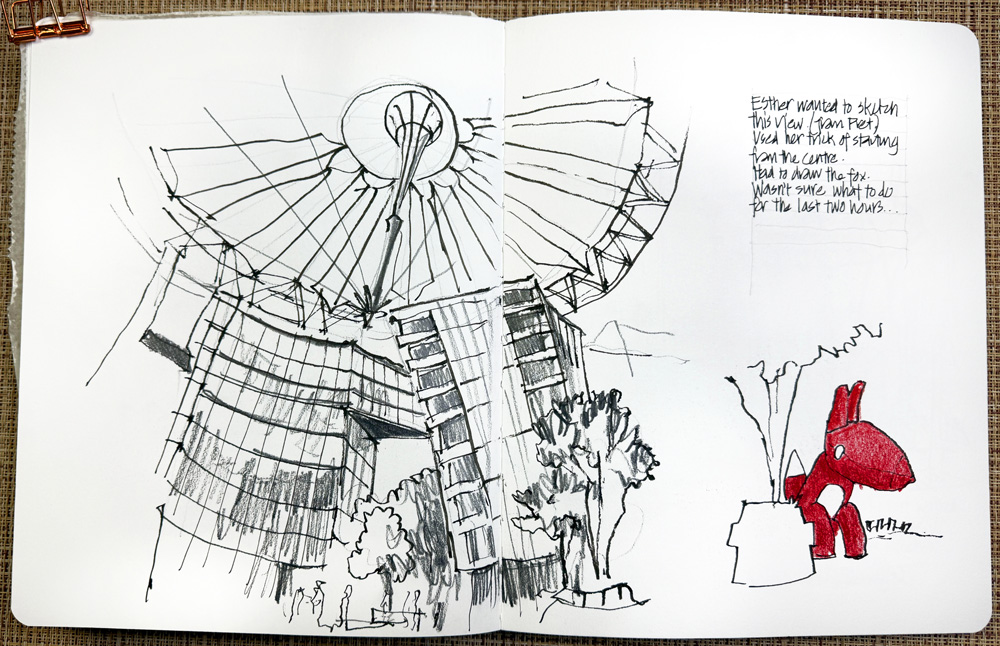 Esther wanted to sketch
this view (from Pret)
Used her trick of starting
from the centre.
Had to draw the fox.
Wasn't sure what to do
for the last two hours...